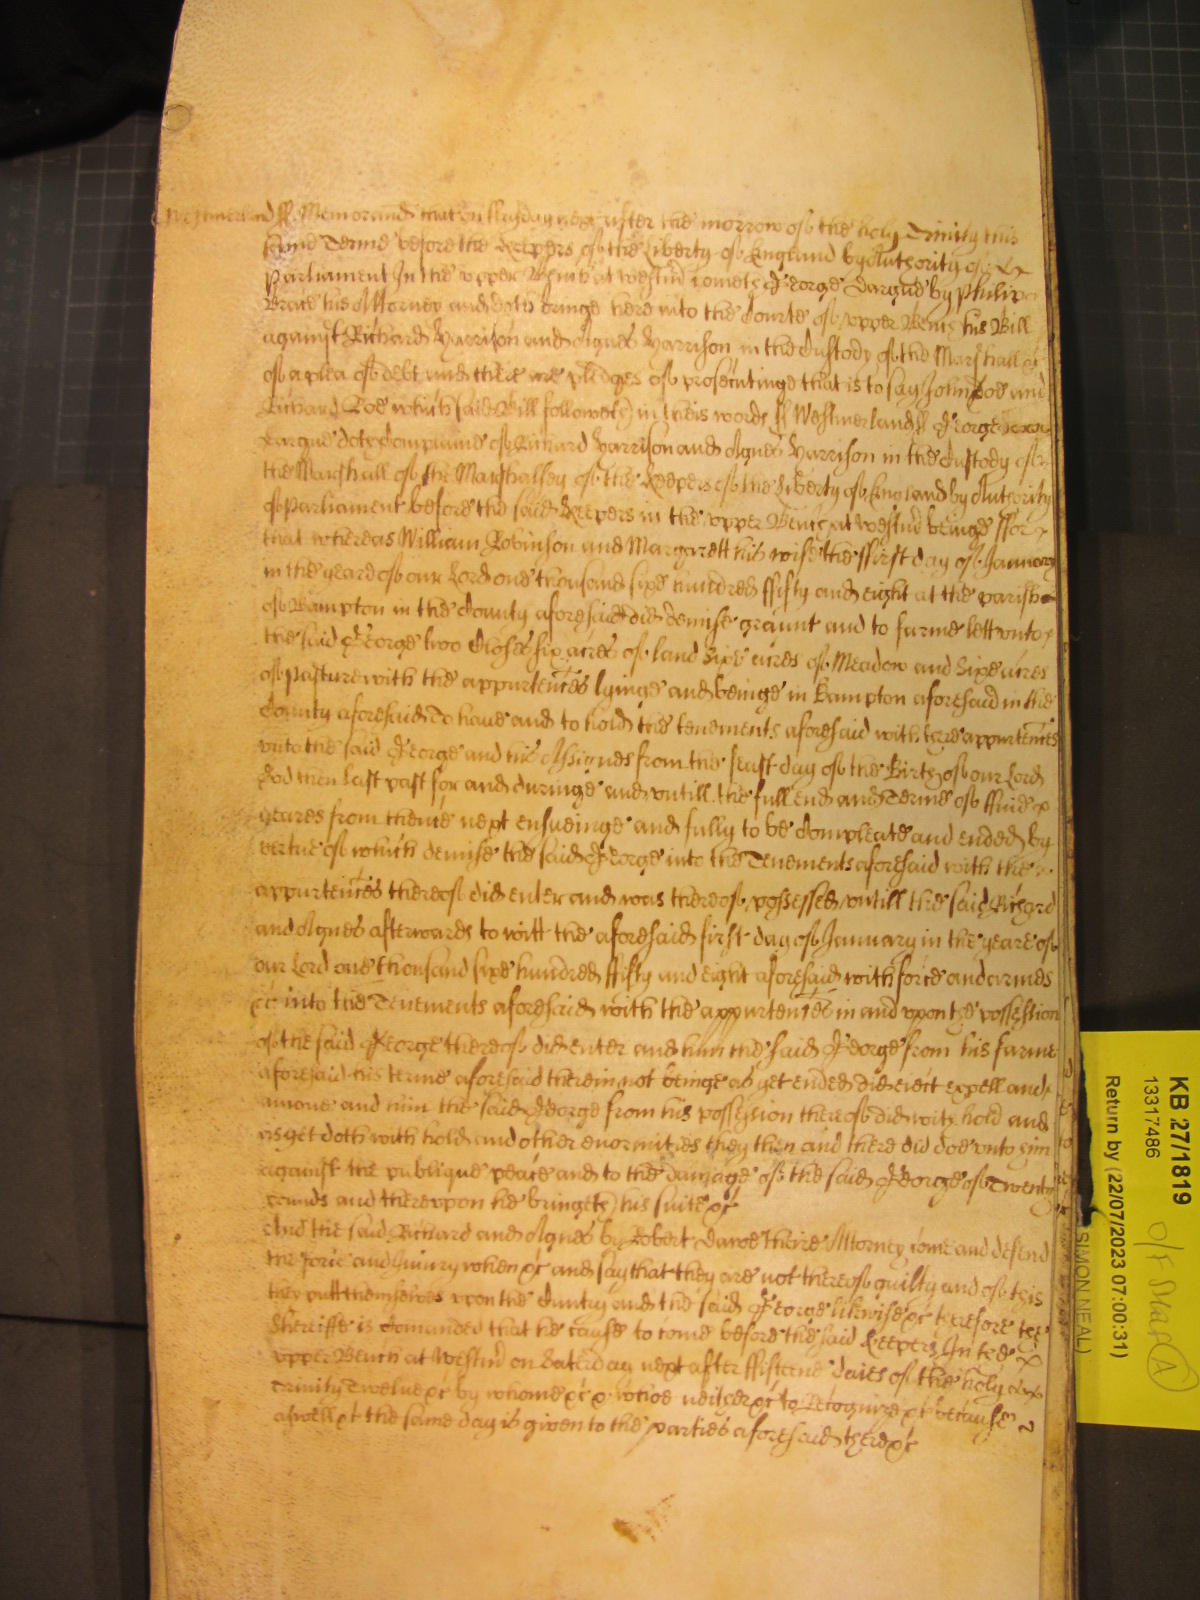 Westmerland ss Memorand that on ffryday next after the morrow of the holy Trinity this
same Terme before the Keepers of the Liberty of England by Authority of
Parliament In the upper Bench at Westm̄ cometh George Dargue by Phillip
Brace his Attorney and doth bringe here into the Courte of upper Bench his Bill
against Richard Harrison and Agnes Harrison in the Custody of the Marshall &c
of a plea of debt and there are pledges of prosecutinge that is to say John Doe and
Richard Roe which said Bill followeth in theis words ss Westmerland ss George
Dargue doth Complaine of Richard Harrison and Agnes Harrison in the Custody of
the Marshall of the Marshalsey of the Keepers of the Liberty of England by Authority
of Parliament before the said Keepers in the upper Bench at Westm̄ beinge ffor
that whereas William Robinson and Margarett his wife the ffirst day of January
in the yeare of our Lord one thousand sixe hundred ffifty and eight at the parish
of Bampton in the County aforesaid did demise graunt and to farme lett unto
the said George two Closes six acres of land sixe acres of Meadow and sixe acres
of Pasture with the appurteñces lyinge and beinge in Bampton aforesaid in the
County aforesaid To have and to hold the tenements aforesaid with there appurteñces
unto the said George and his Assignes from the feast day of the Birth of our Lord
God then last past for and duringe and untill the full end and Terme of ffive
yeares from thence next ensueinge and fully to be Compleate and ended by
vertue of which demise the said George into the Tenements aforesaid with the
appurteñces thereof did enter and was thereof possessed untill the said Richard
and Agnes afterwards to witt the aforesaid first day of January in the yeare of
our Lord one thousand sixe hundred ffifty and eight aforesaid with force and armes
&c into the Tenements aforesaid with the appurteñces in and upon the possession
of the said George thereof did enter and him the said George from his farme
aforesaid his terme aforesaid therein not beinge as yet ended did eiect expell and
amove and him the said George from his possession thereof did with hold and
as yet doth with hold and other enormities they then and there did doe unto him
against the publique peace and to the damage of the said George of Twenty
pounds and thereupon he bringeth his suite &c
And the said Richard and Agnes by Robert Dawe theire Attorney come and defend
the force and Iniury when &c and say that they are not thereof guilty and of this
they putt themselves upon the Cuntry and the said George likewise &c therefore the
Sheriffe is Comanded that he cause to come before the said Keepers In the
upper Bench at Westm̄ on Saterday next after ffifteene daies of the holy
Trinity Twelve &c by whome &c whoe neither &c to Recognize &c because
aswell &c the same day is given to the parties aforesaid there &c
KB 27/1819
13317486
O/F Staff A
Return by (22/07/2023 07:00:31)
SIMON NEAL)